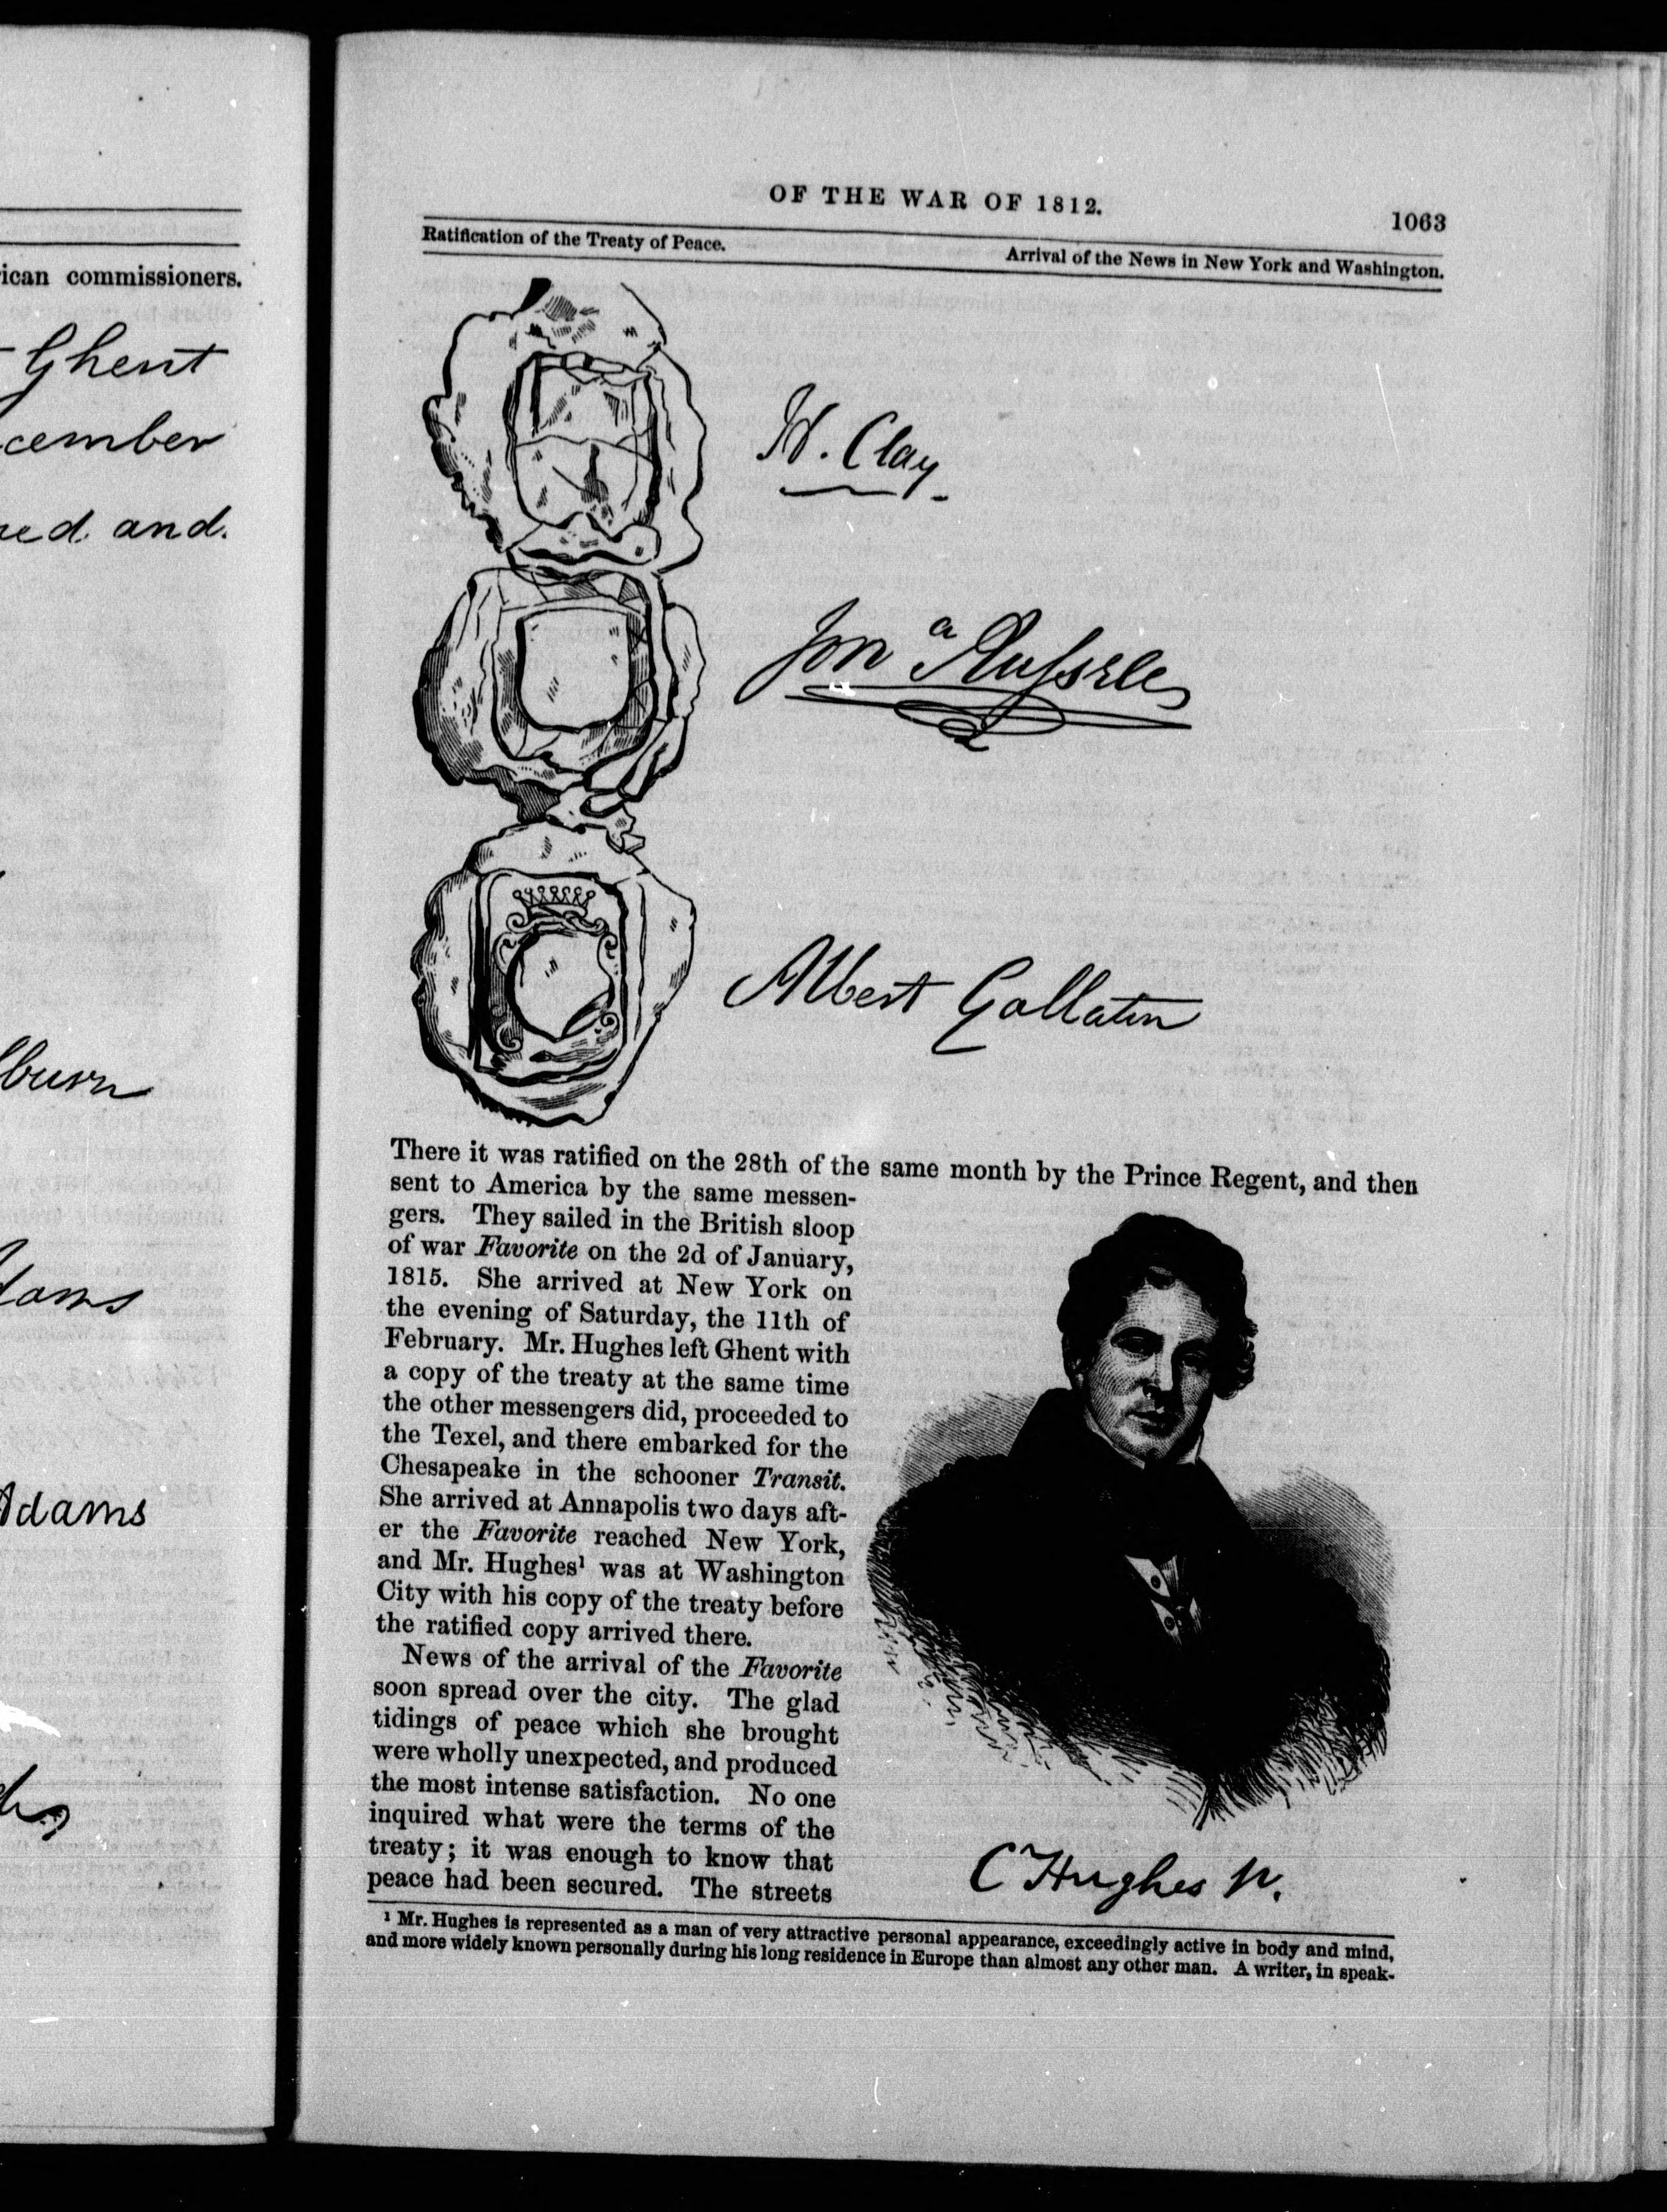 ican commissioners.
Ghent
cember
ned and.
lburn
dams
Adams
OF THE WAR OF 1812.
1063
Ratification of the Treaty of Peace.
Arrival of the News in New York and Washington.
H. Clay
Jonª Russell
Albert Gallatin
There it was ratified on the 28th of the same month by the Prince Regent, and then
sent to America by the same messen-
gers. They sailed in the British sloop
of war Favorite on the 2d of January,
1815. She arrived at New York on
the evening of Saturday, the 11th of
February. Mr. Hughes left Ghent with
a copy of the treaty at the same time
the other messengers did, proceeded to
the Texel, and there embarked for the
Chesapeake in the schooner Transit.
She arrived at Annapolis two days aft-
er the Favorite reached New York,
and Mr. Hughes¹ was at Washington
City with his copy of the treaty before
the ratified copy arrived there.
News of the arrival of the Favorite
soon spread over the city. The glad
tidings of peace which she brought
were wholly unexpected, and produced
the most intense satisfaction. No one
inquired what were the terms of the
treaty; it was enough to know that
peace had been secured. The streets
C Hughes Jr.
¹ Mr. Hughes is represented as a man of very attractive personal appearance, exceedingly active in body and mind,
and more widely known personally during his long residence in Europe than almost any other man. A writer, in speak-